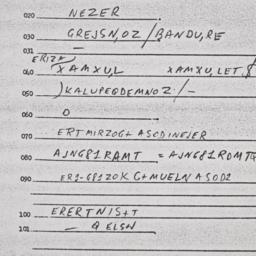 020 NEZER
030 GREJSN,OZ/BANDU,RE
031 –
ERIZA
040 XAMXU,L XAMXU,LET,
050 )KALUPEQDEMNOZ/–
060 O
070 ERTMIRZOG+ ASODINEJER
080 AJNG81RAMT = AJNG81ROMTQ
090 G+MUELNASOD2
100 ERERTNIS+T
101 – QELSN